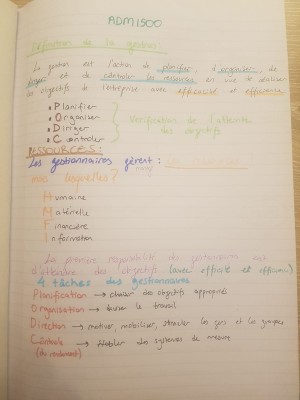 ADM1500
Définition de la gestion:
La gestion est l'action de planifier, d'organiser, de
diriger et de contrôler les ressources en vue de réaliser
les objectifs de l'entreprise avec efficacité et efficience
• Planifier
• Organiser
• Diriger
• Controler
Vérification de l'atteinte
des objectifs.
RESSOURCES:
Les gestionnaires gèrent :
mais lesquelles?
Humaine
Matérielle
Financière
Information
La première responsabilité des gestionnaires est
d'atteindre des objectifs (avec efficacité et efficience)
4 tâches des gestionnaires
Planification → choisir des objectifs appropriés
Organisation → le travail
Direction → motiver, mobiliser, stimuler les gens et les groupes
Contrôle → établir des systèmes de mesure
(du rendement)